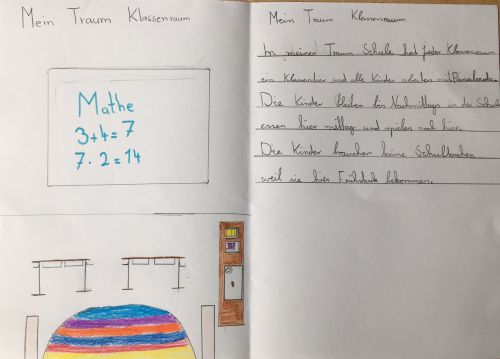 Mein Traum Klassenraum
Mathe
3+4=7
7·2=14
Mein Traum Klassenraum
In meiner Traum Schule hat jeder Klassenraum
ein Klassentier und alle Kinder arbeiten mit
Die Kinder bleiben bis Nachmittags in der Schule
essen hier mittag und spielen noch hier.
Die Kinder brauchen keine Schultaschen
weil sie hier Frühstück bekommen.